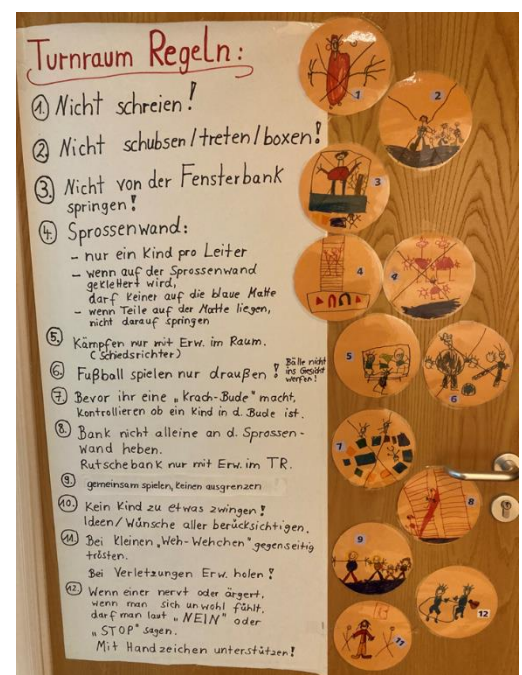 Turnraum Regeln:
1. Nicht schreien!
2. Nicht schubsen/treten/boxen!
3. Nicht von der Fensterbank
springen!
4. Sprossenwand:
- nur ein Kind pro Leiter
- wenn auf der Sprossenwand
geklettert wird,
darf keiner auf die blaue Matte
- wenn Teile auf der Matte liegen,
nicht darauf springen
5. Kämpfen nur mit Erw. im Raum.
(Schiedsrichter)
6. Fußball spielen nur draußen! Bälle nicht
ins Gesicht
werfen!
7. Bevor ihr eine „Krach-Bude" macht,
kontrollieren ob ein Kind in d. Bude ist.
8. Bank nicht alleine an d. Sprossen-
wand heben.
Rutschebank nur mit Erw. im TR.
9. gemeinsam spielen, keinen ausgrenzen
10. Kein Kind zu etwas zwingen!
Ideen/Wünsche aller berücksichtigen.
11. Bei kleinen „Weh-Wehchen" gegenseitig
trösten.
Bei Verletzungen Erw. holen!
12. Wenn einer nervt oder ärgert,
wenn man sich unwohl fühlt,
darf man laut „NEIN" oder
„STOP" sagen.
Mit Handzeichen unterstützen!
1
2
3
4
4
5
6
7
8
9
12
11